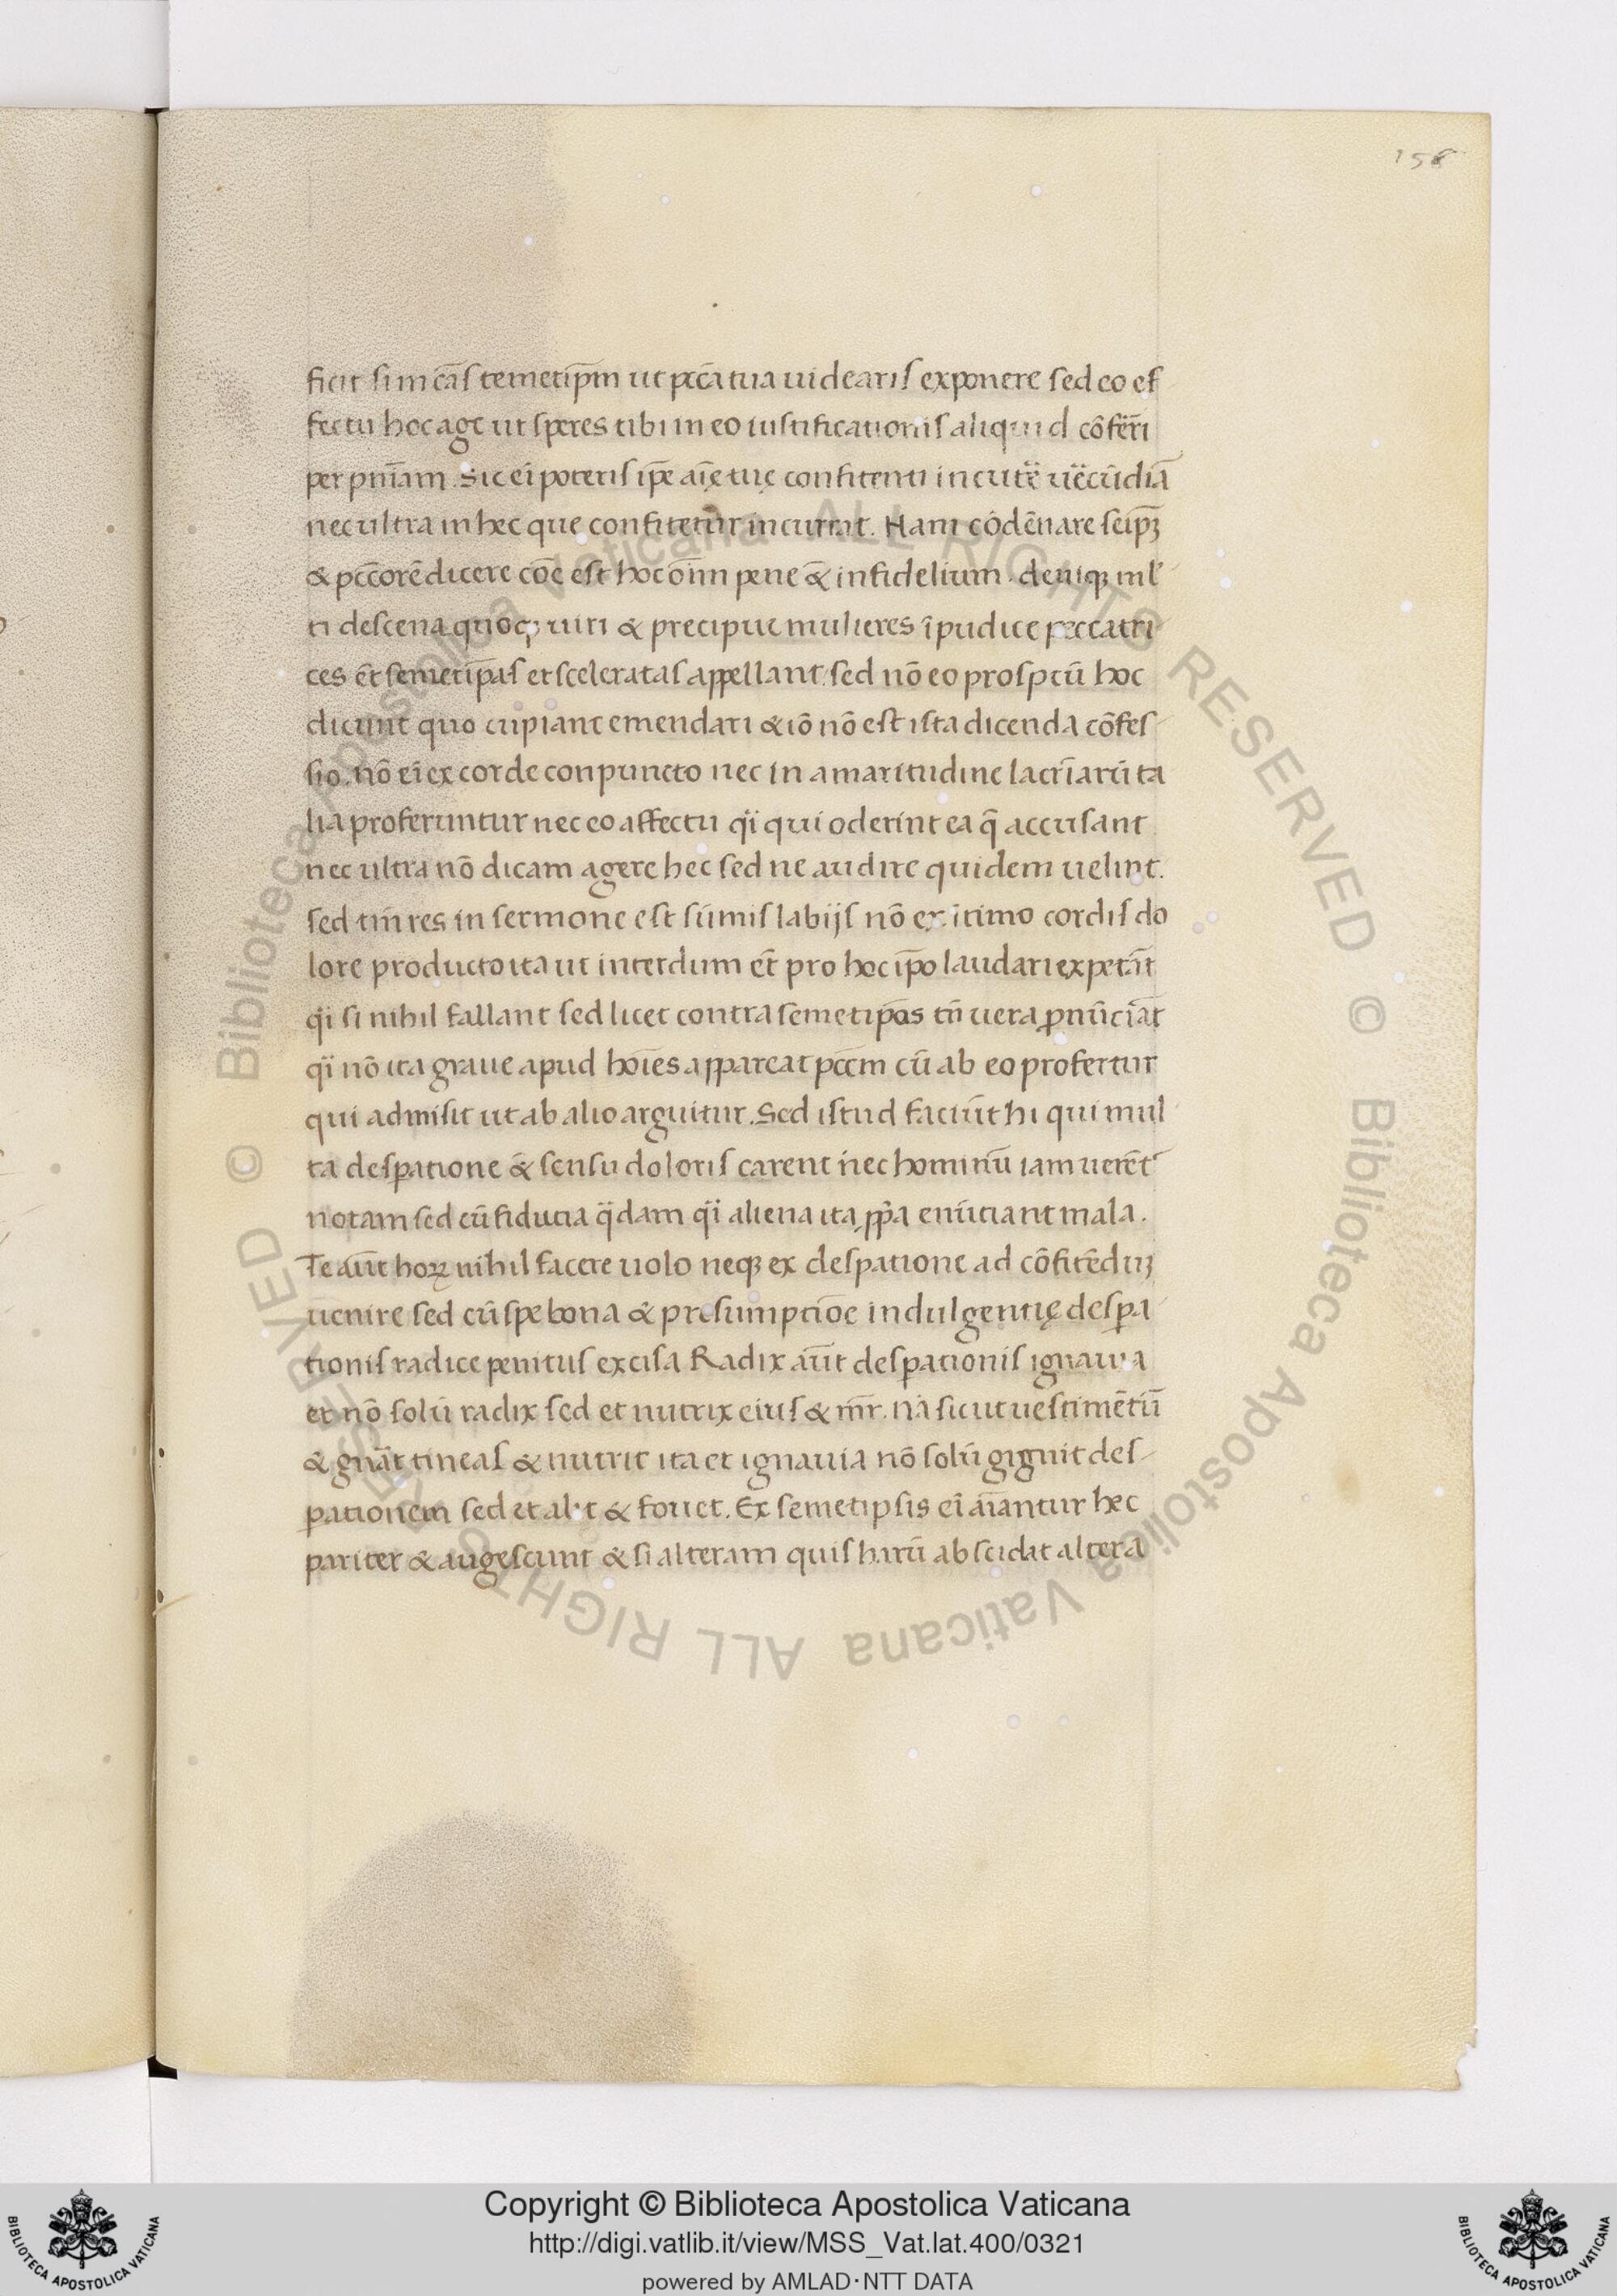 158
ficit si incãs temetip̃m ut pcc̃a tua uidearis exponere sed eo ef
fectu hoc age ut speres tibi in eo iustificationis aliquid cõferri
per pñiam. Sic ei poteris ip̃e aĩę tuę confitenti incutẽ uẽcũdiã
nec ultra in hec que confitetur incurrat. Nam cõdẽnare seipꝫ
& pcc̃orẽ dicere cõe est hoc oĩm pene & infidelium. deniqꝫ ml̃
ti descena quoqꝫ uiri & precipue mulieres ĩpudice peccatri
ces et̃ semetip̃as et sceleratas appellant. sed nõ eo prosp̃ctũ hoc
dicunt quo cupiant emendari & iõ nõ est ista dicenda cõfes
sio. nõ ei ex corde conpuncto nec in amaritudine lacrĩarũ ta
lia proferuntur nec eo affectu q̃i qui oderint ea q̃ accusant
nec ultra nõ dicam agere hec sed ne audire quidem uelint.
sed tm̃ res in sermone est sũmis labijs nõ ex ĩtimo cordis do
lore producto ita ut interdum et̃ pro hoc ip̃o laudari expetãt
q̃i si nihil fallant sed licet contra semetip̃os tñ uera ꝓnũciãt
q̃i nõ ita graue apud hoĩes appareat pcc̃m cũ ab eo profertur
qui admisit ut ab alio arguitur. Sed istud faciũt hi qui mul
ta desꝑatione & sensu doloris carent nec hominũ iam uerẽt
notam sed cũ fiducia q̃dam q̃i aliena ita ꝓpͥa enũciant mala.
Te aũt hoꝝ nihil facere uolo neqꝫ ex desꝑatione ad cõfitẽduꝫ
uenire sed cũ spe bona & presumptiõe indulgentię desꝑa
tionis radice penitus excisa. Radix aũt desꝑationis ignauia
et nõ solũ radix sed et nutrix eius & mr̃. nã sicut uestimẽtũ
& gñat tineas & nutrit ita et ignauia nõ solũ gignit des
ꝑationem sed et alit & fouet. Ex semetipsis ei aĩantur hec
pariter & augescunt & si alteram quis harũ abscidat altera
Copyright © Biblioteca Apostolica Vaticana
http://digi.vatlib.it/view/MSS_Vat.lat.400/0321
powered by AMLAD·NTT DATA
BIBLIOTECA APOSTOLICA VATICANA
BIBLIOTECA APOSTOLICA VATICANA
© Biblioteca Apostolica Vaticana ALL RIGHTS RESERVED © Biblioteca Apostolica Vaticana ALL RIGHTS RESERVED